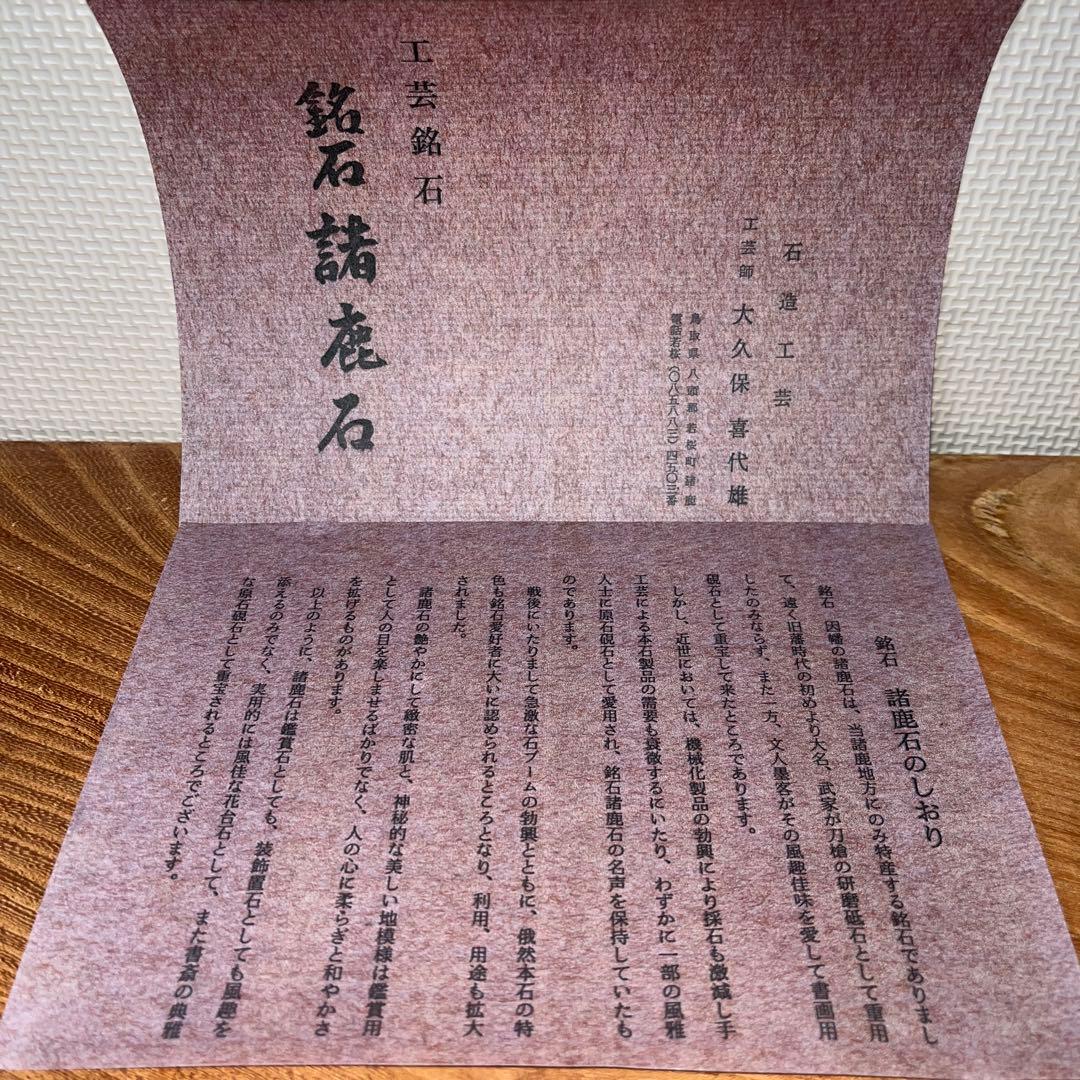 石造工芸
工芸師 大久保喜代雄
鳥取県八頭郡若桜町諸鹿
電話若桜(〇八五八八二)四五〇三番
工芸銘石
銘石諸鹿石
銘石 諸鹿石のしおり
銘石 因幡の諸鹿石は、当諸鹿地方にのみ特産する銘石でありまし
て、遠く旧藩時代の初めより大名、武家が刀槍の研磨砥石として重用
したのみならず、また一方、文人墨客がその風趣佳味を愛して書画用
硯石として重宝して来たところであります。
しかし、近世においては、機械化製品の勃興により採石も激減し手
工芸による本石製品の需要も衰微するにいたり、わずかに一部の風雅
人士に原石硯石として愛用され、銘石諸鹿石の名声を保持していたも
のであります。
戦後にいたりまして急激な石ブームの勃興とともに、俄然本石の特
色も銘石愛好者に大いに認められるところとなり、利用、用途も拡大
されました。
諸鹿石の艶やかにして緻密な肌と、神秘的な美しい地模様は鑑賞用
として人の目を楽しませるばかりでなく、人の心に柔らぎと和やかさ
を拡げるものがあります。
以上のように、諸鹿石は鑑賞石としても、装飾置石としても風趣を
添えるのみでなく、実用的には風佳な花台石として、また書斎の典雅
な原石硯石として重宝されるところでございます。